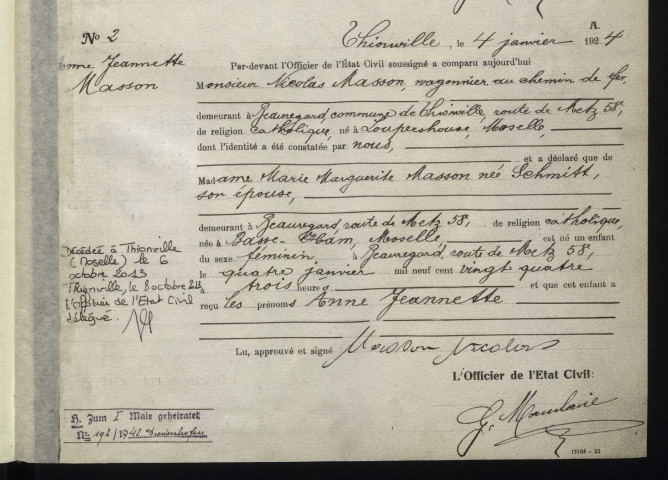 A.
No 2
Thionville, le 4 janvier 1924
Anne Jeannette
Masson
Par-devant l'Officier de l'État Civil soussigné a comparu aujourd'hui
Monsieur Nicolas Masson, wagonnier au chemin de fer,
demeurant à Beauregard, commune de Thionville, route de Metz 58,
de religion catholique, né à Loupershouse, Moselle,
dont l'identité a été constatée par nous,
et a déclaré que de
Madame Marie Marguerite Masson née Schmitt,
son épouse,
demeurant à Beauregard, route de Metz 58, de religion catholique,
née à Basse-Ham, Moselle, est né un enfant
du sexe féminin, à Beauregard, route de Metz 58,
le quatre janvier mil neuf cent vingt quatre
à trois heures et que cet enfant a
reçu les prénoms Anne Jeannette
Lu, approuvé et signé Masson Nicolas
L'Officier de l'Etat Civil:
G. 
15164 - 23
Décédée à Thionville
(Moselle) le 6
octobre 2013
Thionville, le 8 octobre 2013
L'Officier de l'Etat Civil
délégué.
H. Zum I Male geheiratet
Nr. 192/1942 Diedenhofen